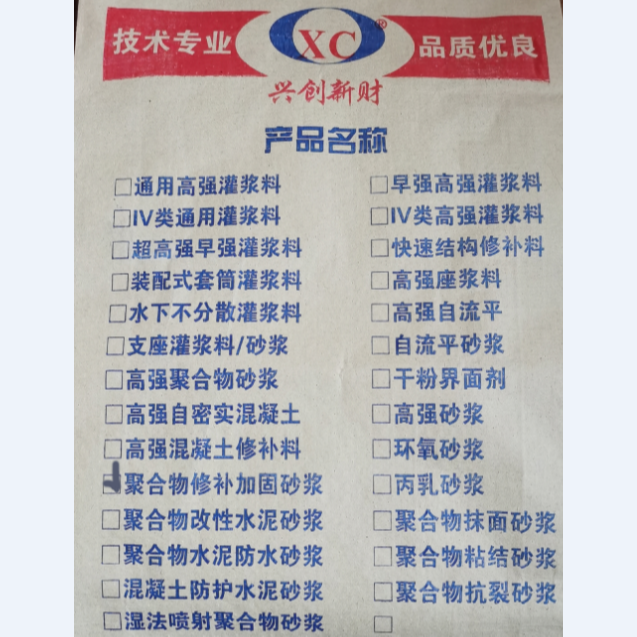 技术专业 XC® 品质优良
兴创新财
产品名称
□通用高强灌浆料 □早强高强灌浆料
□IV类通用灌浆料 □IV类高强灌浆料
□超高强早强灌浆料 □快速结构修补料
□装配式套筒灌浆料 □高强座浆料
□水下不分散灌浆料 □高强自流平
□支座灌浆料/砂浆 □自流平砂浆
□高强聚合物砂浆 □干粉界面剂
□高强自密实混凝土 □高强砂浆
□高强混凝土修补料 □环氧砂浆
□聚合物修补加固砂浆 □丙乳砂浆
□聚合物改性水泥砂浆 □聚合物抹面砂浆
□聚合物水泥防水砂浆 □聚合物粘结砂浆
□混凝土防护水泥砂浆 □聚合物抗裂砂浆
□湿法喷射聚合物砂浆 □